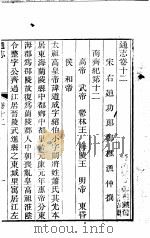 通志卷十二
宋右迪功郎鄭樵漁仲撰
南齊紀第十二
高帝 武帝 鬱林王 海陵王 明帝 東昏
和帝
太祖高皇帝諱道成字紹伯小字鬭將姓蕭氏其先本
居東海蘭陵縣中都鄉中都里晉元康元年惠帝分東
海郡為蘭陵郡故復為蘭陵郡人中朝喪亂高祖淮陰
令整字公齊過江居晉陵武進縣之東城里寓居江左